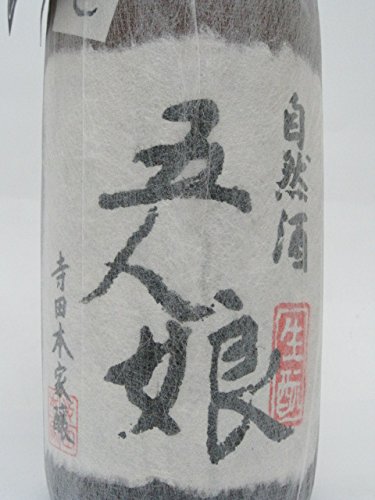 自然酒
生酛
五人娘
寺田本家蔵